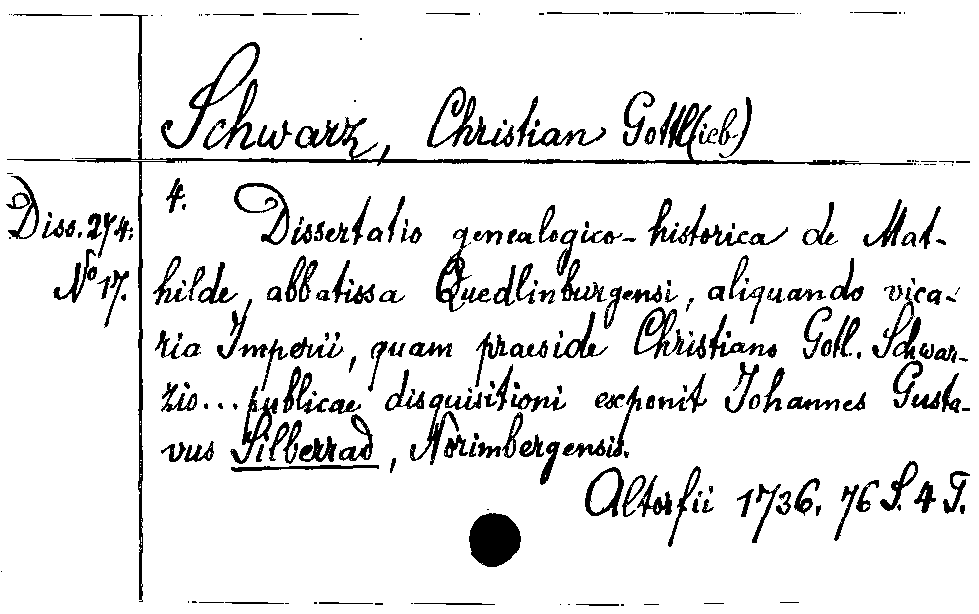 Schwarz, Christian Gottl(ieb)
Diss. 274:
No 17.
4. Dissertatio genealogico-historica de Mat-
hilde, abbatissa Quedlinburgensi, aliquando vica-
ria Imperii, quam praeside Christiano Gotl. Schwar-
zio... publicae disquisitioni exponit Johannes Gusta-
vus Silberrad, Norimbergensis.
Altorfii 1736. 76 S. 4 T.